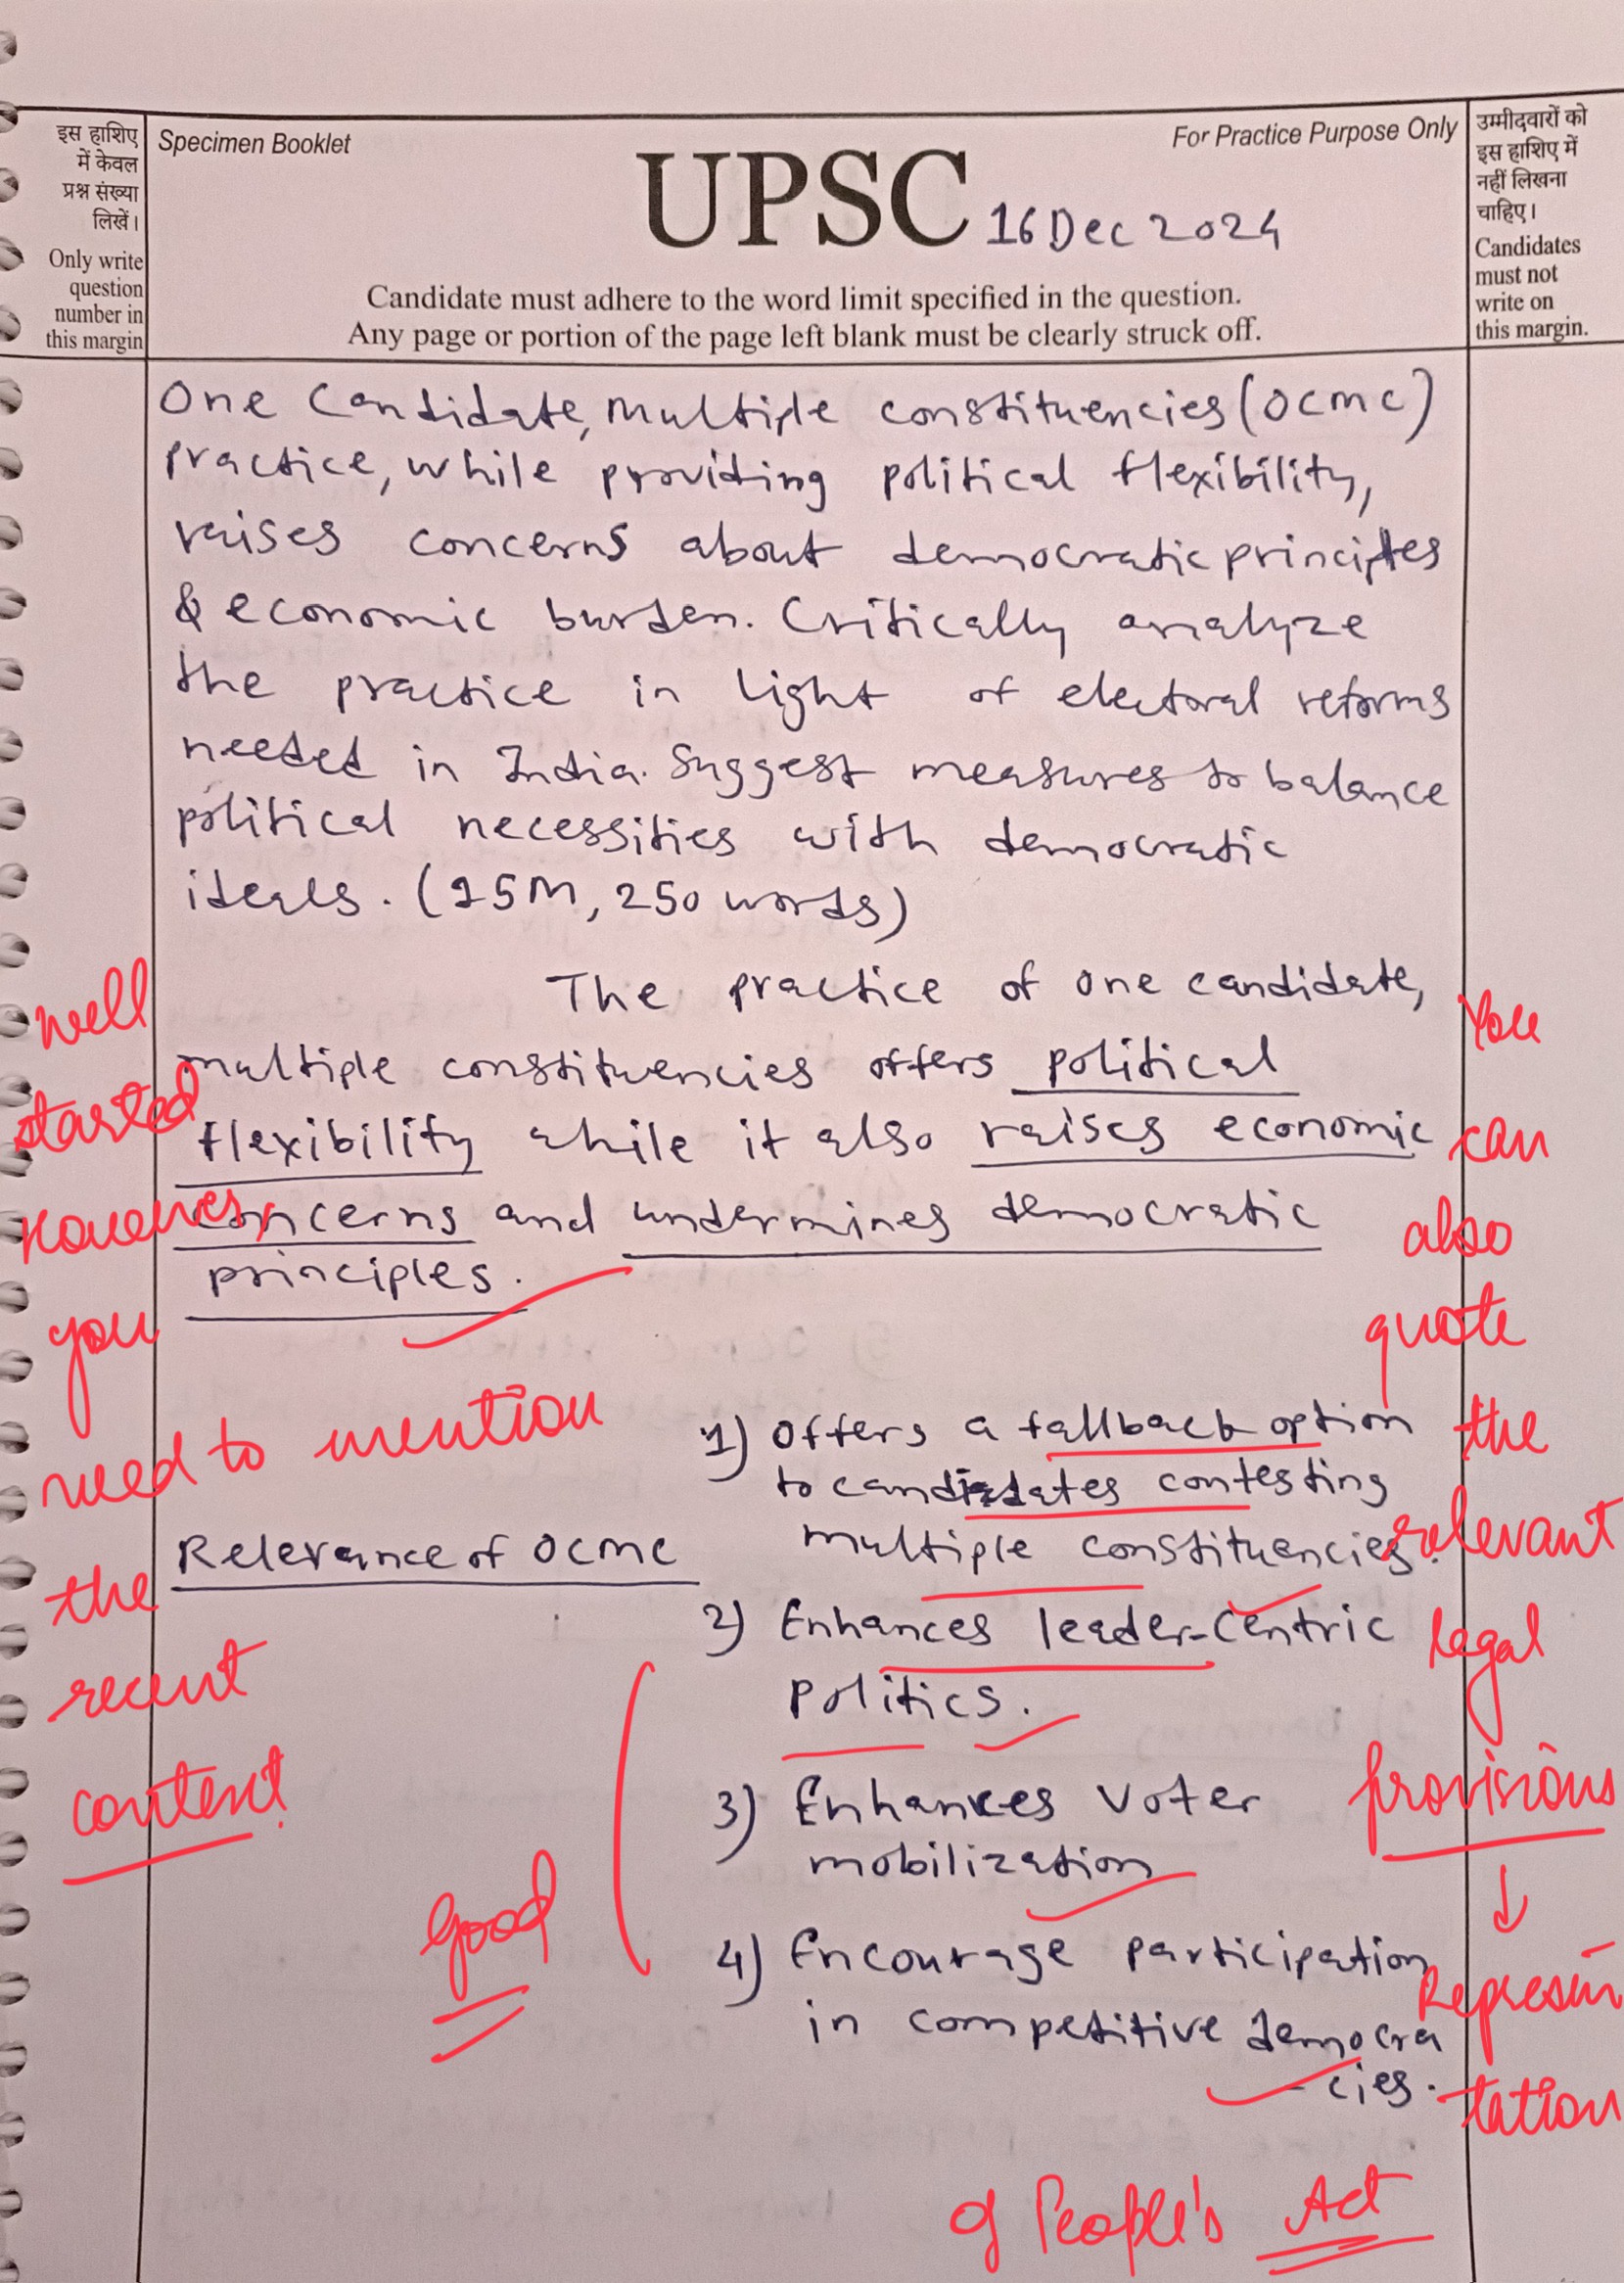 इस हाशिए
में केवल
प्रश्न संख्या
लिखें।
Only write
question
number in
this margin
Specimen Booklet
For Practice Purpose Only
UPSC 16 Dec 2024
Candidate must adhere to the word limit specified in the question.
Any page or portion of the page left blank must be clearly struck off.
उम्मीदवारों को
इस हाशिए में
नहीं लिखना
चाहिए।
Candidates
must not
write on
this margin.
One Candidate, Multiple constituencies (OCMC)
practice, while providing political flexibility,
raises concerns about democratic principles
& economic burden. Critically analyze
the practice in light of electoral reforms
needed in India. Suggest measures to balance
political necessities with democratic
ideals. (15M, 250 words)
The practice of one candidate,
multiple constituencies offers political
flexibility while it also raises economic
concerns and undermines democratic
principles.
Relevance of OCMC
1) Offers a fallback option
to candidates contesting
multiple constituencies.
2) Enhances leader-centric
politics.
3) Enhances voter
mobilization
4) Encourage participation
in competitive democra
-cies.
well
started
However,
you
need to mention
the
recent
context!
Good
You
can
also
quote
the
relevant
legal
provisions
↓
Represen
tation
of People's Act